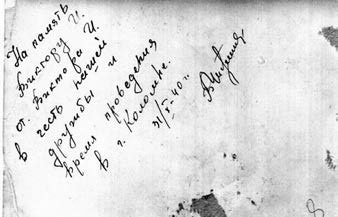 На память
Виктору И.
от Виктора И.
в честь нашей
дружбы и
время проведения
в г. Коломне.
21/X-40 г.